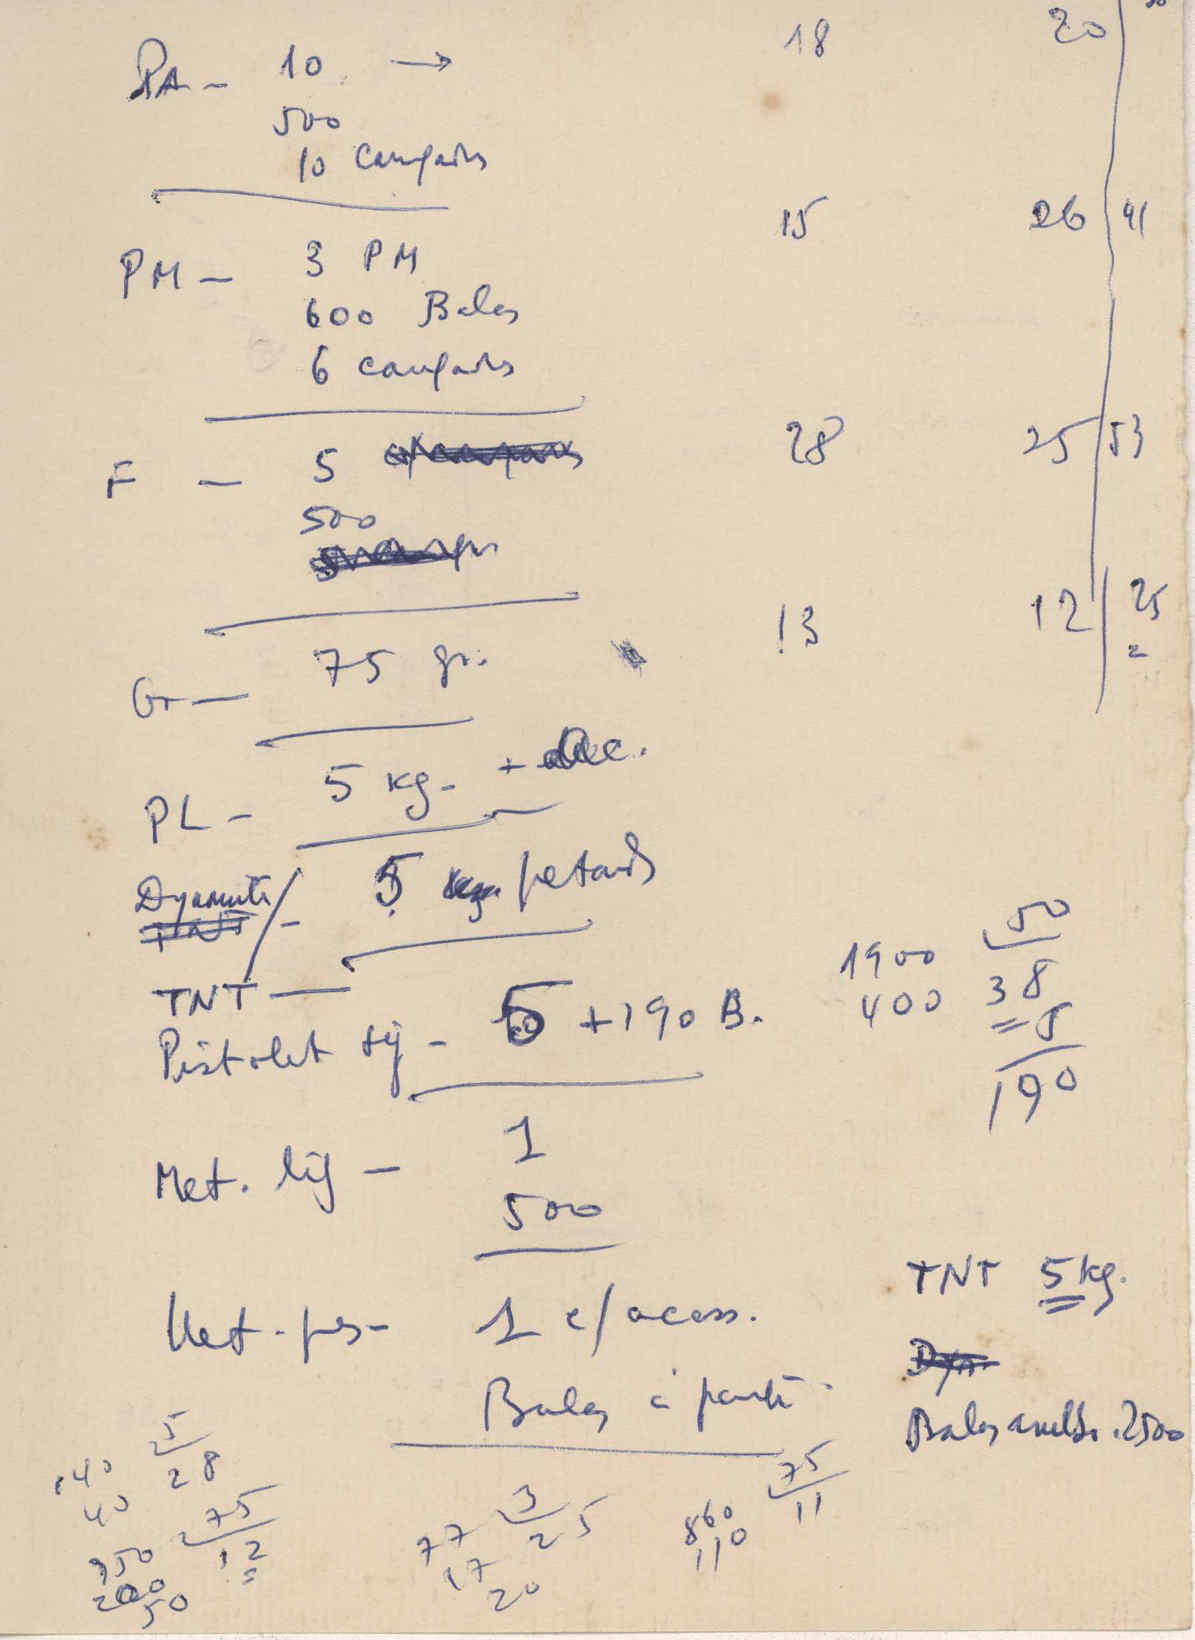 PA - 10 → 18 20
500
10 Caugads
PM - 3 PM 15 26 41
600 Balas
6 caugads
F - 5 28 25 53
500
Gr - 75 gr. 13 12 25
PL - 5 kg. +
Dynamite
TNT / - 5 petards
TNT —
1900 50
400 38
5
190
Pistolet sig - 5 + 190 B.
Met. lig - 1
500
TNT 5 kg.
Met. pes - 1 c/ acess.
Dyn.
Balas à parte.
Balas 2500
140 5
40 28
950 75
200 12
50
77 3
17 25
20
860 75
110 11